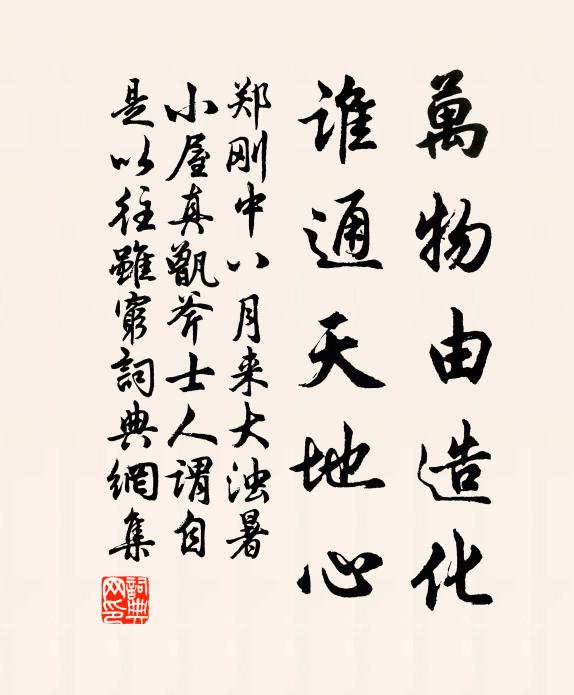 萬物由造化
誰通天地心
郑刚中八月来大浊暑
小屋真甑斧士人谓自
是以往雖窮詞典網集
詞典網印